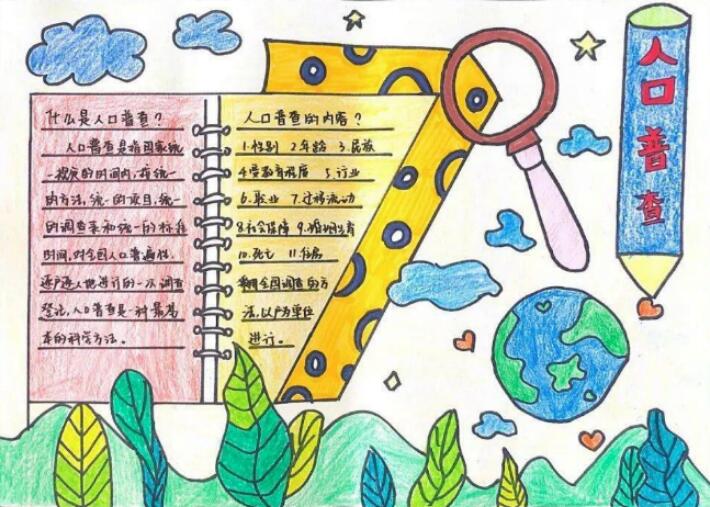 什么是人口普查?
人口普查是指国家统
一规定的时间内,按统一
的方法,统一的项目,统一
的调查表和统一的标准
时间,对全国人口普遍性.
逐户逐人地进行的一次调查
登记,人口普查是一种最基
本的科学方法。
人口普查的内容?
1.性别 2.年龄 3.民族
4.受教育程度 5.行业
6.职业 7.迁移流动
8.社会保障 9.婚姻生育
10.死亡 11.住房
全国调查的方
法,以户为单位
进行。
人口普查